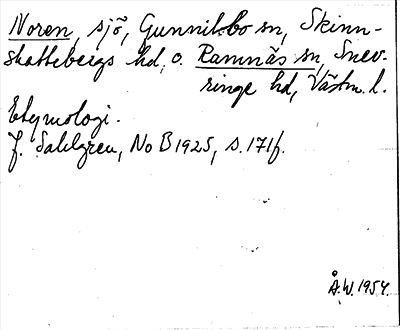 Noren, sjö, Gunnilbo sn, Skinn-
skattebergs hd, o. Ramnäs sn, Snev-
ringe hd, Västm. l.
Etymologi.
J. Sahlgren, NoB 1925, s. 171f.
Å.W. 1954.